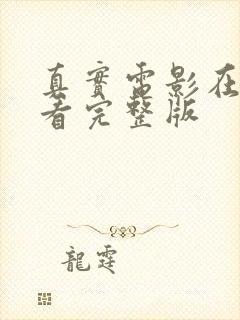 真實電影在
看完整版
龍霆